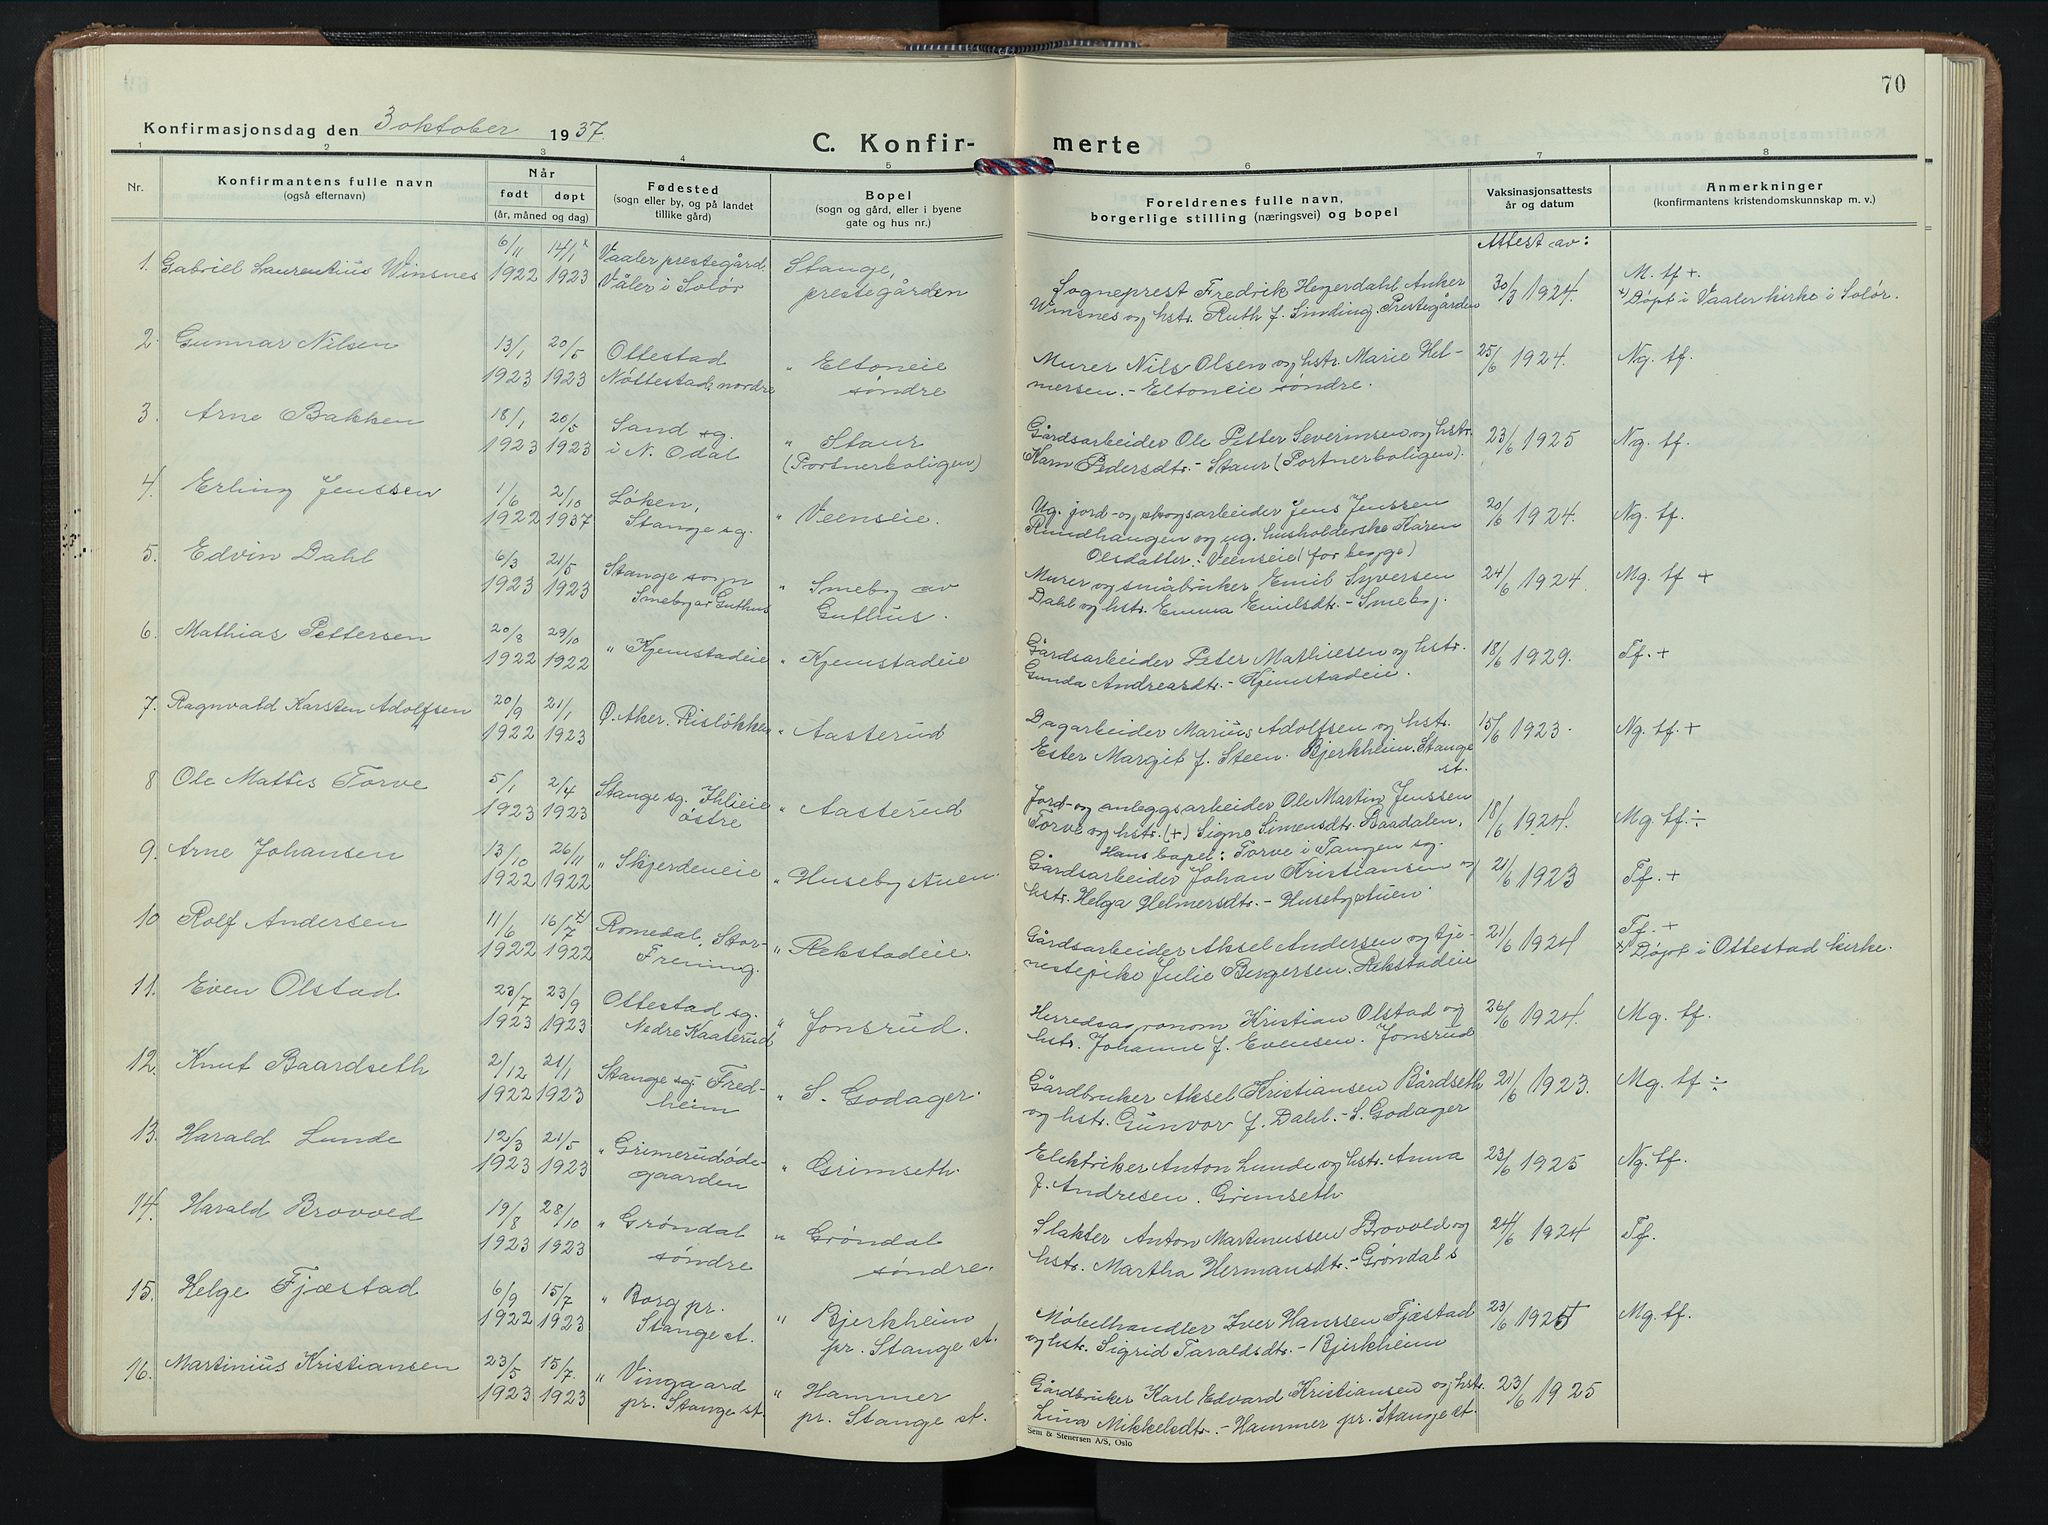 70
Konfirmasjonsdag den 3 oktober 1937.
C. Konfir- merte
1 2 3 4 5 6 7 8
Nr.
Konfirmantens fulle navn
(også efternavn)
Når
født døpt
(år, måned og dag)
Fødested
(sogn eller by, og på landet
tillike gård)
Bopel
(sogn og gård, eller i byene
gate og hus nr.)
Foreldrenes fulle navn,
borgerlige stilling (næringsvei) og bopel
Vaksinasjonsattests
år og datum
Anmerkninger
(konfirmantens kristendomskunnskap m. v.)
Attest av:
1. Gabriel Laurentius Winsnes 6/11 1922 14/1 x 1923 Vaaler prestegård. Våler i Solør Stange, prestegården
Sogneprest Fredrik Heyerdahl Anker
Winsnes og hstr. Ruth f. Sinding. Prestegården
30/3 1924. M. tf +.
x) Døpt i Vaaler kirke i Solør.
2. Gunnar Nilsen 13/1 1923 20/5 1923 Ottestad Nøttestad, nordre " Eltoneie søndre
Murer Nils Olsen og hstr. Marie Hel-
mersen. - Eltoneie søndre.
25/6 1924. Ng. tf.
3. Arne Bakken 18/1 1923 20/5 1923 Sand sg. i N. Odal " Staur (Portnerboligen)
Gårdsarbeider Ole Petter Severinsen og hstr.
Karn Pedersdtr. - Staur (Portnerboligen).
23/6 1925 Ng. tf.
4. Erling Jenssen 1/6 1922 2/10 1937 Løken, Stange sg. " Veenseie.
Ug. jord- og skogsarbeider Jens Jenssen
Rundhaugen og ug. husholderske Karen
Olsdatter. : Veenseie (for begge)
20/6 1924. Ng. tf.
5. Edvin Dahl 6/3 1923 21/5 1923 Stange sogn Smeby av Guthus " Smeby av Guthus.
Murer og småbruker Emil Syversen
Dahl og hstr. Emma Emilsdtr. - Smeby.
24/6 1924. Mg. tf +
6. Mathias Pettersen 20/8 1922 29/10 1922 " Kjemstadeie " Kjemstadeie
Gårdsarbeider Peter Mathiesen og hstr.
Gunda Andreasdtr. - Kjemstadeie.
18/6 1929. Tf. +
7. Ragnvald Karsten Adolfsen 20/9 1922 21/1 1923 Ø. Aker. Risløkken " Aasterud
Dagarbeider Marius Adolfsen og hstr.
Ester Margit f. Steen. Bjerkheim. Stange
st.
15/6 1923. Ng. tf. +
8 Ole Mattis Torve 5/1 1923 2/4 1923 Stange sg. Ihlieie østre " Aasterud
Jord- og anleggsarbeider Ole Martin Jenssen
Torve og hstr. (+) Signe Simensdtr. Baadalen,
Hans bopel: Torve i Tangen sg.
18/6 1924. Mg. tf. ÷
9. Arne Johansen 13/10 1922 26/11 1922 " Skjerdeneie " Husebystuen.
Gårdsarbeider Johan Kristiansen og
hstr. Helga Helmersdtr. - Husebystuen.
21/6 1923 Tf. +
10 Rolf Andersen 11/6 1922 16/7 x) 1922 Romedal, Stor- Frening. " Rekstadeie.
Gårdsarbeider Aksel Andersen og tje-
nestepike Julie Bergersen. Rekstadeie
21/6 1924 Tf. +
x) Døpt i Ottestad kirke.
11. Even Olstad 23/7 1923 23/9 1923 Ottestad sg. Nedre Kaaterud " Jonsrud.
Herredsagronom Kristian Olstad og
hstr. Johanne f. Evensen. Jonsrud
26/6 1924. Mg. tf.
12. Knut Baardseth 2/12 1922 21/1 1923 Stange sg. Fred- heim " S. Godager.
Gårdbruker Aksel Kristiansen Bårdseth
og hstr. Gunvor f. Dahl. - S. Godager
21/6 1923. Mg. tf ÷
13. Harald Lunde 12/3 1923 21/5 1923 " Grimerudøde- gaarden " Grimseth.
Elektriker Anton Lunde og hstr. Anna
f. Andresen. Grimseth
23/6 1925 Ng. tf.
14. Harald Brovold 19/8 1923 28/10 1923 " Grøndal søndre " Grøndal søndre.
Slakter Anton Martinussen Brovold og
hstr. Martha Hermansdtr. - Grøndal s
24/6 1924 Tf.
15. Helge Fjæstad 6/9 1922 15/7 1923 " Borg pr. Stange st. " Bjerkheim pr. Stange st.
Møbelhandler Iver Hanssen Fjæstad
og hstr. Sigrid Taraldsdtr. - Bjerkheim
23/6 1925 Mg. tf.
16. Martinius Kristiansen 23/5 1923 15/7. 1923 " Vingaard pr. Stange st. " Hammer pr. Stange st.
Gårdbruker Karl Edvard Kristiansen og hstr.
Lina Mikkelsdtr. - Hammer pr. Stange st.
23/6 1925
Sem & Stenersen A/S, Oslo